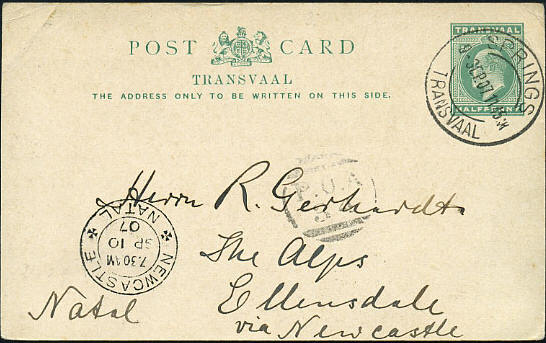 POST CARD
TRANSVAAL
THE ADDRESS ONLY TO BE WRITTEN ON THIS SIDE.
TRANSVAAL
HALFPENNY
SPRINGS
TRANSVAAL
Herrn R. Gerhardt
P.O.A
The Alps
Ellensdale
via Newcastle
Natal
NEWCASTLE
NATAL
7.30 AM
SP 10
07